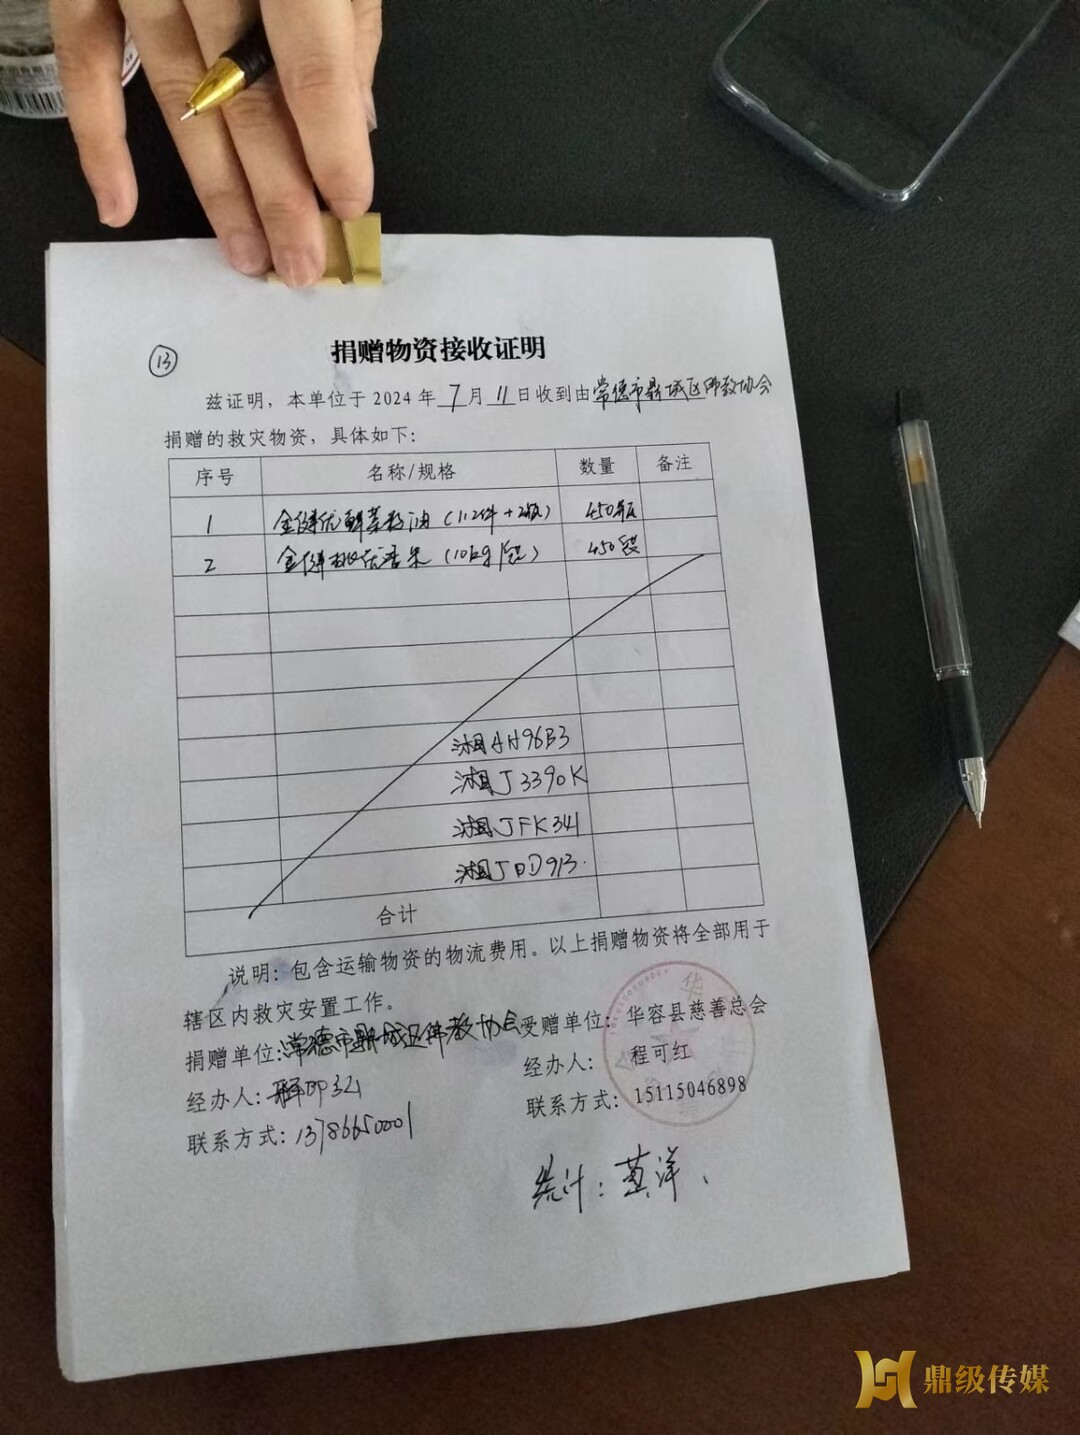 13
捐赠物资接收证明
兹证明，本单位于 2024 年 7 月 11 日收到由常德市鼎城区佛教协会
捐赠的救灾物资，具体如下：
序号 名称/规格 数量 备注
1 金健优鲜菜籽油（112件+2瓶） 450瓶
2 金健 香米（10kg/袋） 450袋
湘AH96B3
湘J3390K
湘JFK341
湘JDD913
合计
说明：包含运输物资的物流费用。以上捐赠物资将全部用于
辖区内救灾安置工作。
捐赠单位：常德市鼎城区佛教协会 受赠单位：华容县慈善总会
经办人：释印 经办人：程可红
联系方式：13786650001 联系方式：15115046898
统计：黄洋
鼎级传媒